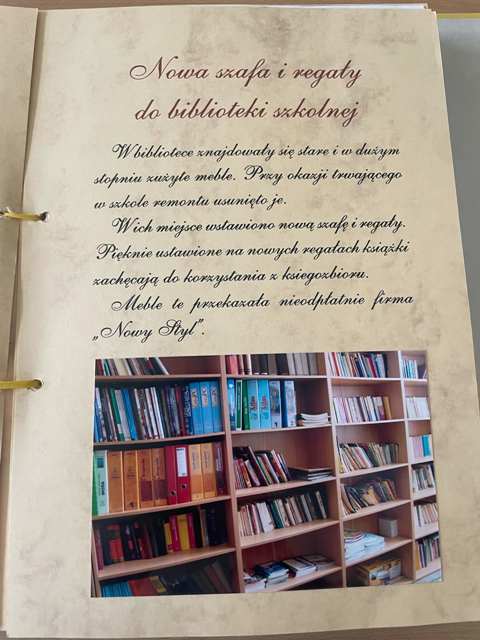 Nowa szafa i regały
do biblioteki szkolnej
W bibliotece znajdowały się stare i w dużym
stopniu zużyte meble. Przy okazji trwającego
w szkole remontu usunięto je.
W ich miejsce wstawiono nową szafę i regały.
Pięknie ustawione na nowych regałach książki
zachęcają do korzystania z ksiegozbioru.
Meble te przekazała nieodpłatnie firma
„Nowy Styl”.